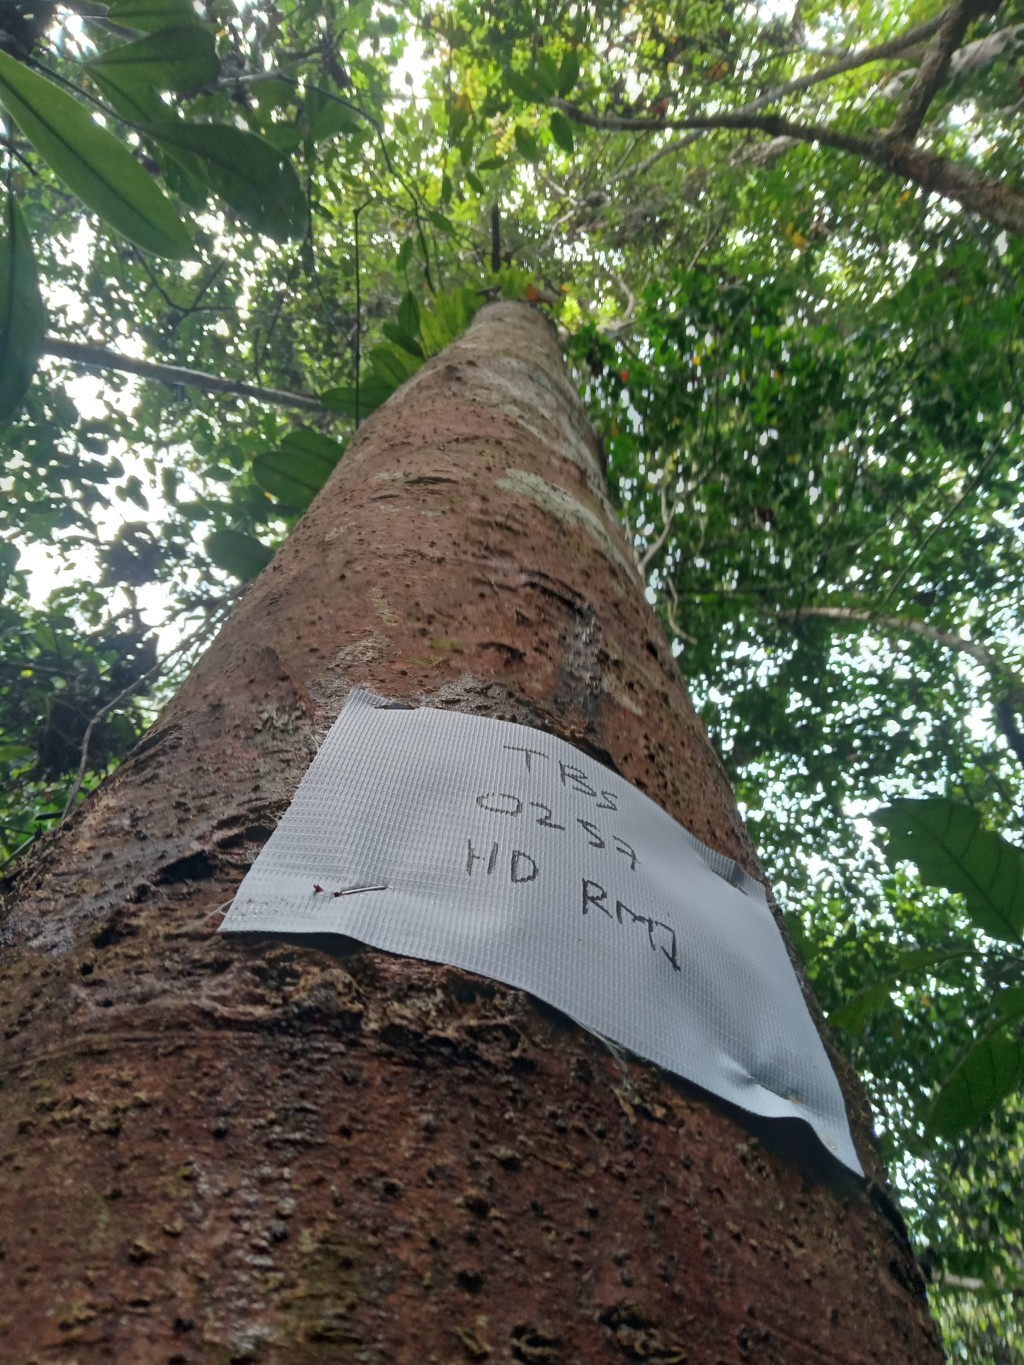 TBS
0257
HD RMJ